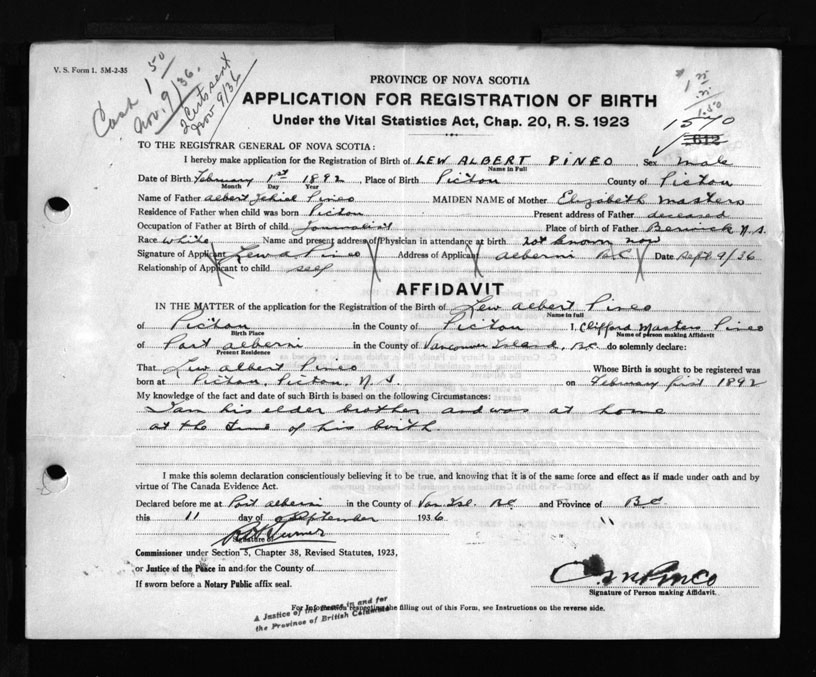 V. S. Form 1. 5M-2-35
Cash 1 50
Nov. 9/36.
2 Certs sent
Nov 9/36
PROVINCE OF NOVA SCOTIA
APPLICATION FOR REGISTRATION OF BIRTH
Under the Vital Statistics Act, Chap. 20, R. S. 1923
1.50
1570
612
TO THE REGISTRAR GENERAL OF NOVA SCOTIA:
I hereby make application for the Registration of Birth of LEW ALBERT PINEO, Sex male
Name in Full
Date of Birth February 1st 1892, Place of Birth Pictou County of Pictou
Month Day Year
Name of Father Albert Jehiel Pineo MAIDEN NAME of Mother Elizabeth Masters
Residence of Father when child was born Pictou Present address of Father deceased
Occupation of Father at Birth of child Journalist Place of birth of Father Berwick N.S.
Race White Name and present address of Physician in attendance at birth not known now
Signature of Applicant Lew A Pineo Address of Applicant Alberni B.C. Date Sept 9/36
Relationship of Applicant to child self
AFFIDAVIT
IN THE MATTER of the application for the Registration of the Birth of Lew Albert Pineo
Name in Full
of Pictou in the County of Pictou I, Clifford Masters Pineo
Birth Place Name of person making Affidavit
of Port Alberni in the County of Vancouver Island, B.C. do solemnly declare:
Present Residence
That Lew Albert Pineo Whose Birth is sought to be registered was
born at Pictou, Pictou, N.S. on February first 1892
My knowledge of the fact and date of such Birth is based on the following Circumstances:
I am his elder brother and was at home
at the time of his birth.
I make this solemn declaration conscientiously believing it to be true, and knowing that it is of the same force and effect as if made under oath and by
virtue of The Canada Evidence Act.
Declared before me at Port Alberni in the County of Van. Isl. B.C. and Province of B.C.
this 11 day of September 1936 "
Signature of
Commissioner under Section 5, Chapter 38, Revised Statutes, 1923,
or Justice of the Peace in and for the County of
If sworn before a Notary Public affix seal.
C M Pineo
Signature of Person making Affidavit.
For Information respecting the filling out of this Form, see Instructions on the reverse side.
A Justice of the Peace in and for
the Province of British Columbia